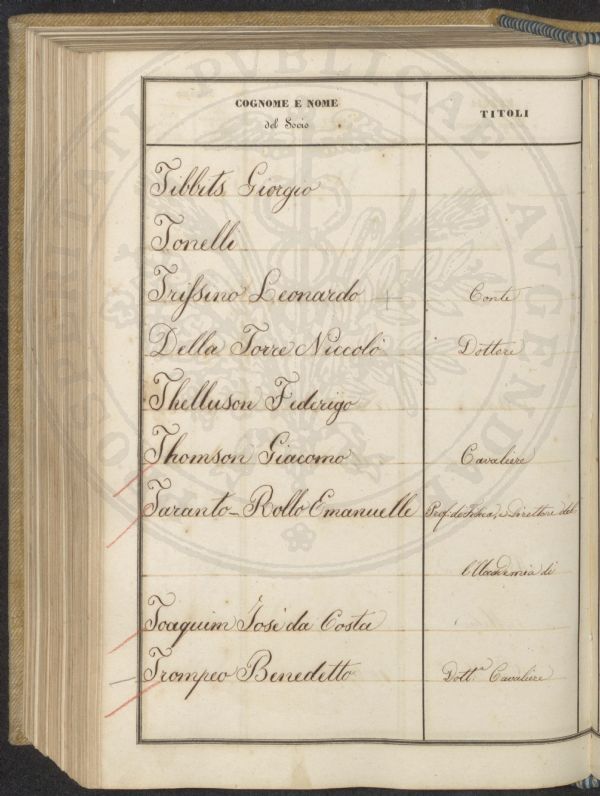 COGNOME E NOME
del Socio
TITOLI
Tibbits Giorgio
Tonelli
Trissino Leonardo + Conte
Della Torre Niccolò Dottore
Thelluson Federigo
Thomson Giacomo Cavaliere
Taranto-Rollo Emanuelle Prof. di Fisica, e Direttore del
l'Accademia di
Joaquim José da Costa
Trompeo Benedetto Dott. Cavaliere
PROSPERITATI PUBLICAE AUGENDAE